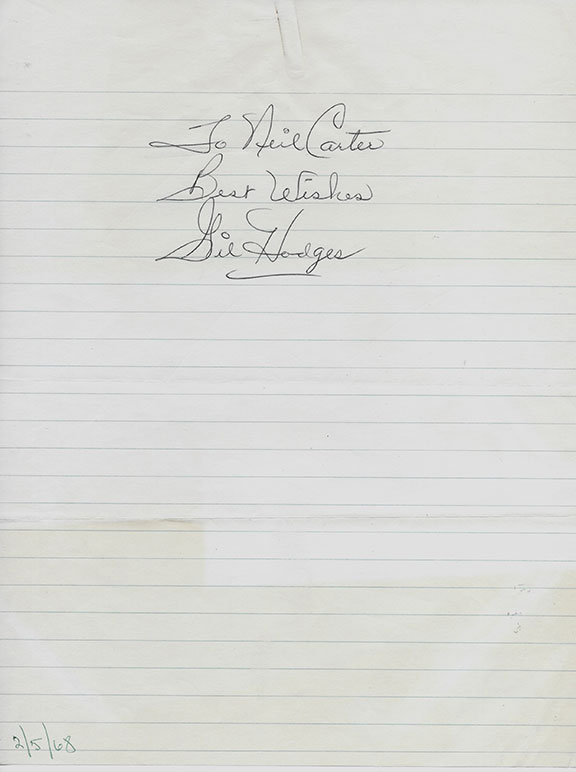 To Neil Carter
Best Wishes
Gil Hodges
2/5/68